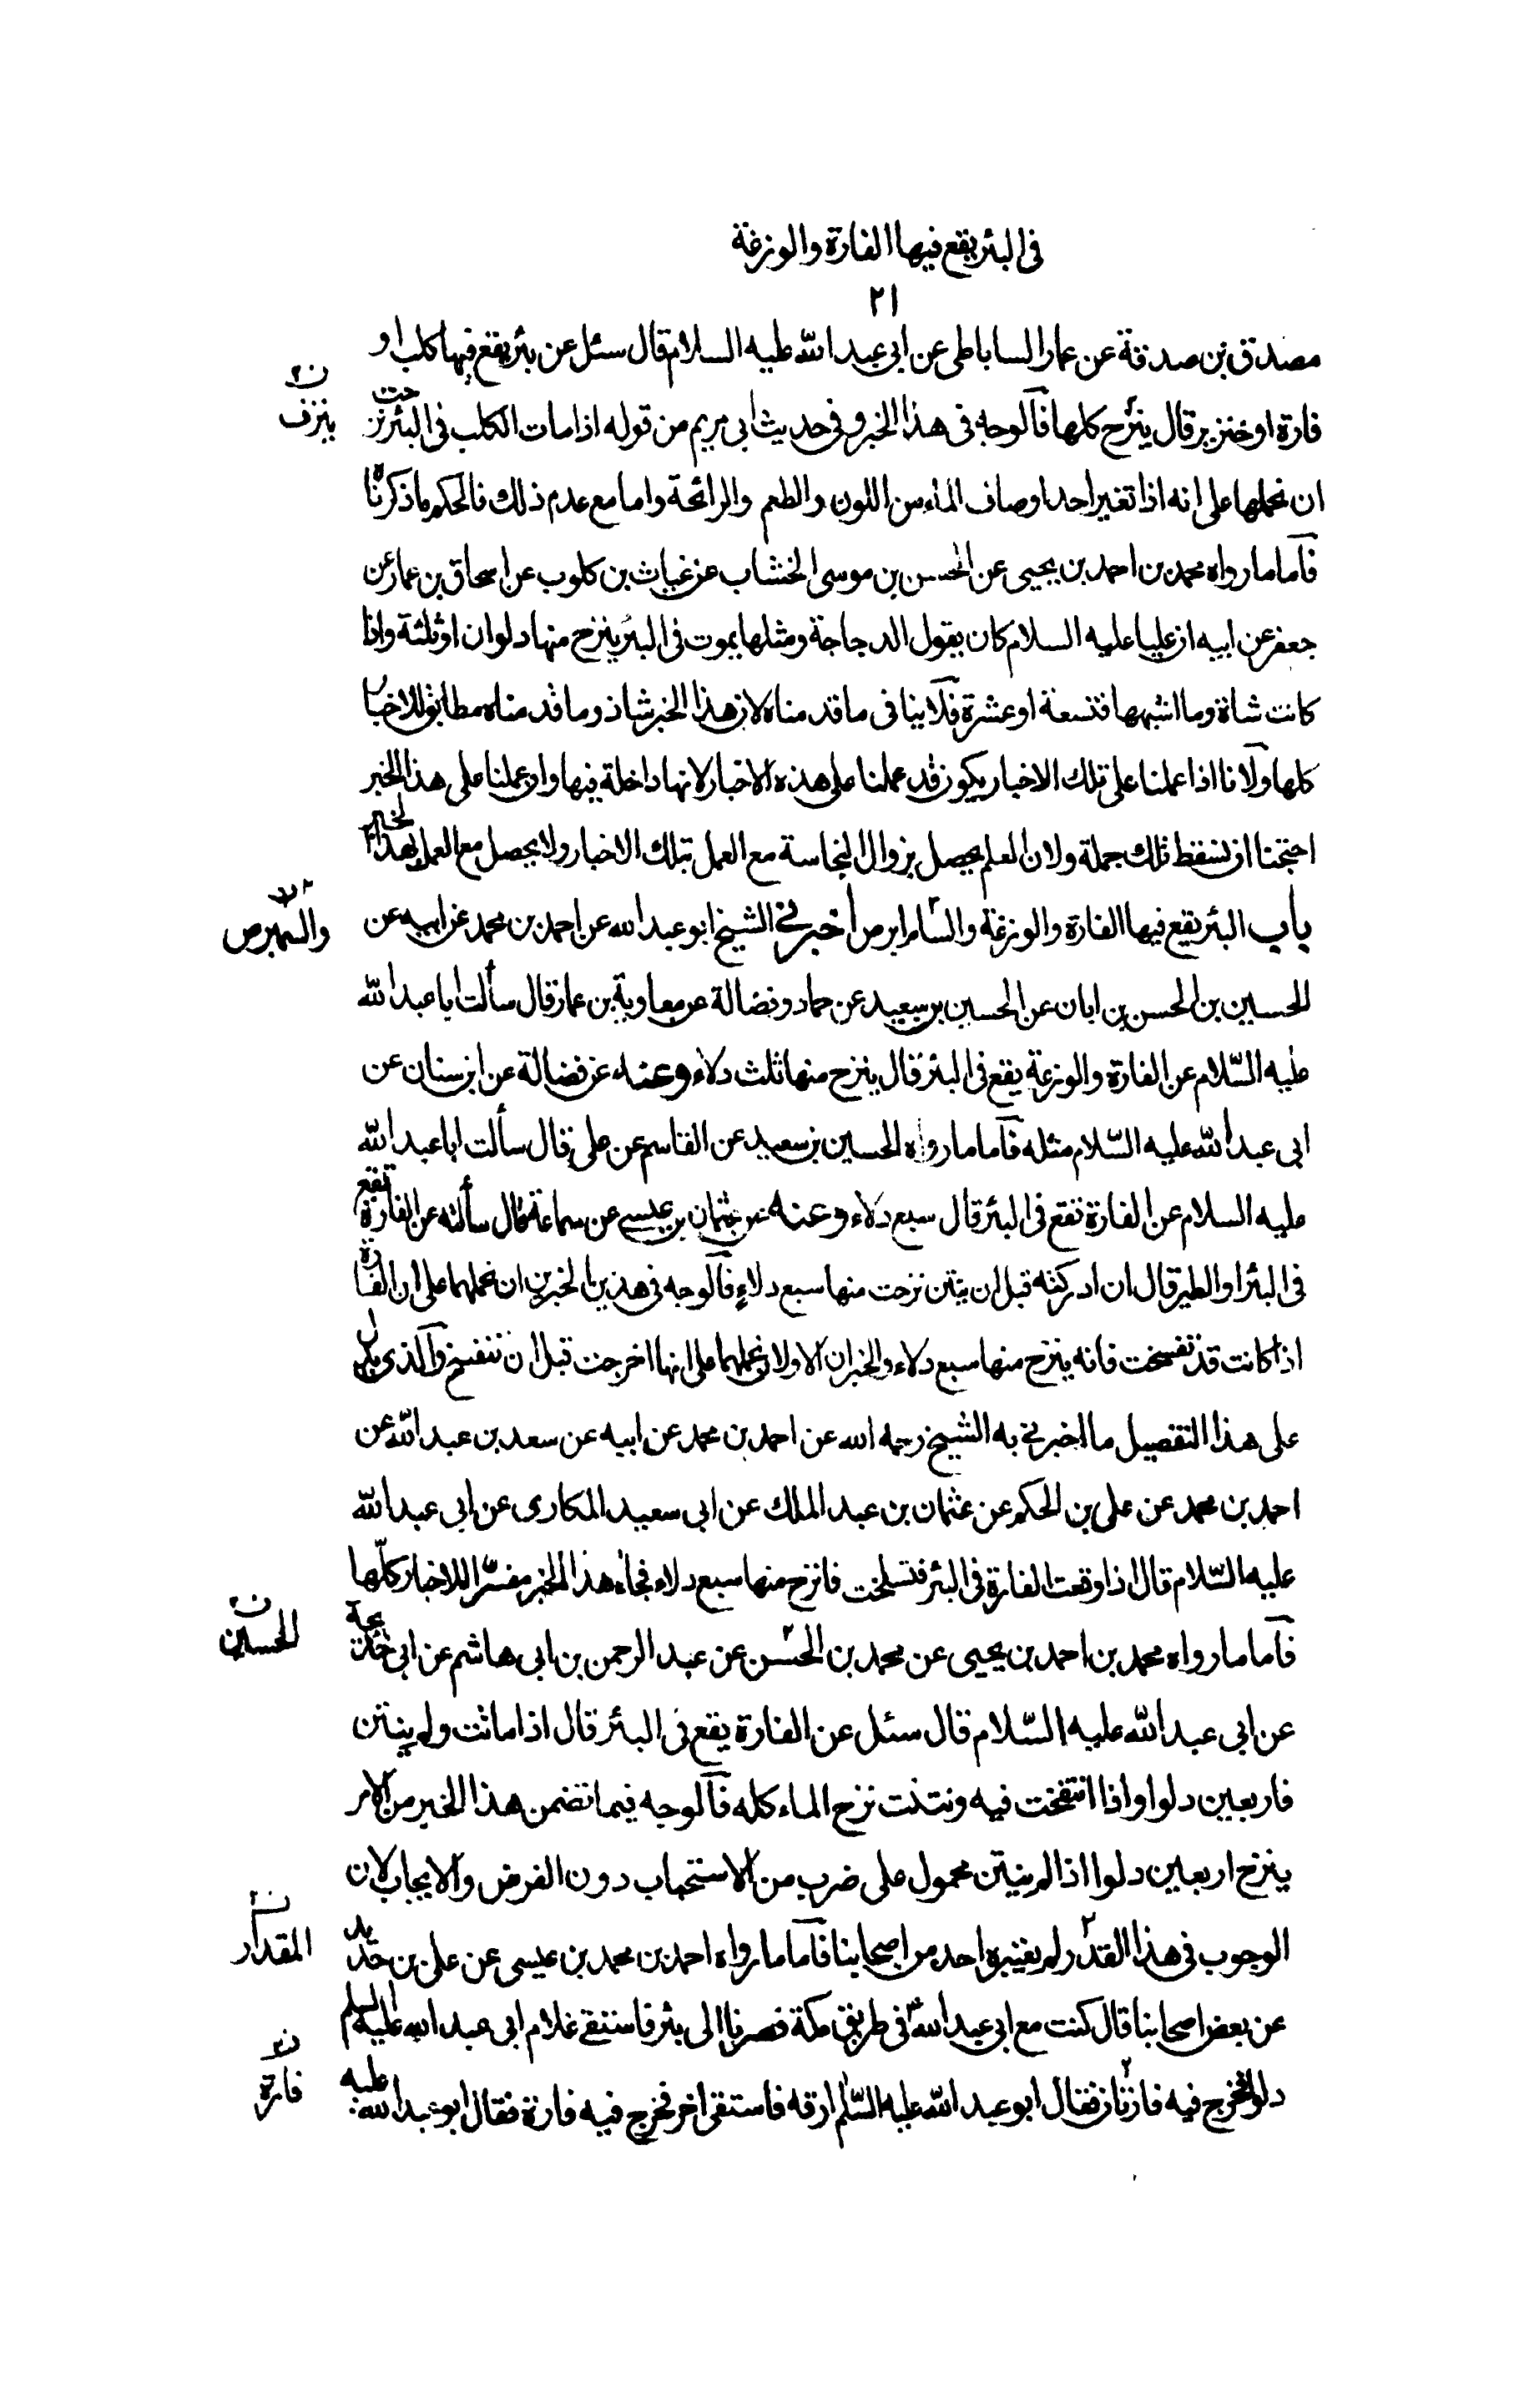 فى البئر يقع فيها الفارة والوزغة
٢١
مصدق بن صدقة عن عمار الساباطى عن ابى عبد الله عليه السلام قال سئل عن بئر يقع فيها كلب او
فارة او خنزير قال ينزح كلها فآلوجه فى هذا الخبر وفى حديث ابى مريم من قوله اذا مات الكلب فى البئر نزحت
ن٢
ينزف
ان نحملها على انه اذا تغير احد اوصاف الماء من اللون والطعم والرائحة واما مع عدم ذلك فالحكم ما ذكرناه
فآما ما رواه محمد بن احمد بن يحيى عن الحسن بن موسى الخشاب عن غياث بن كلوب عن اسحاق بن عمار عن
جعفر عن ابيه ان عليا عليه السلام كان يقول الدجاجة ومثلها يموت فى البئر ينزح منها دلوان او ثلثة واذا
كانت شاة وما اشبهها فتسعة او عشرة فلا ينافى ما قدمناه لان هذا الخبر شاذ وما قدمناه مطابق للاخبار
كلها ولآنا اذا عملنا على تلك الاخبار يكون قد عملنا على هذه الاخبار لانها داخلة فيها واو عملنا على هذا الخبر
احتجنا ان نسقط تلك جملة ولان العلم يحصل بزوال النجاسة مع العمل بتلك الاخبار ولا يحصل مع العمل بهذا الخبر
باب البئر يقع فيها الفارة والوزغة والسام ابرص أخبرنى الشيخ ابو عبد الله عن احمد بن محمد عن ابيه عن
والسمبرص
الحسين بن الحسن بن ابان عن الحسين بن سعيد عن حماد وفضالة عن معاوية بن عمار قال سألت ابا عبد الله
عليه السّلام عن الفارة والوزغة يقع فى البئر قال ينزح منها ثلث دلاء وعنه عن فضالة عن ابن سنان عن
ابى عبد الله عليه السّلام مثله فآما ما رواه الحسين بن سعيد عن القاسم عن على قال سألت ابا عبد الله
عليه السلام عن الفارة تقع فى البئر قال سبع دلاء وعنه عن عثمان بن عيسى عن سماعة قال سألته عن الفارة تقع
فى البئر او الطير قال ان ادركته قبل ان ينتن نزحت منها سبع دلاءٍ فآلوجه فى هذين الخبرين ان نحملهما على ان الفارة
اذا كانت قد تفسخت فانه ينزح منها سبع دلاء والخبران الاولان نحملهما على انها اخرجت قبل ان تتفسخ وآلذى يدل
على هذا التفصيل ما اخبرنى به الشيخ رحمه الله عن احمد بن محمد عن ابيه عن سعد بن عبد الله عن
احمد بن محمد عن على بن الحكم عن عثمان بن عبد الملك عن ابى سعيد المكارى عن ابى عبد الله
عليه السّلام قال اذا وقعت الفارة فى البئر فتسلخت فانزح منها سبع دلاء فجاء هذا الخبر مفسّرا للاخبار كلّها
فآما ما رواه محمد بن احمد بن يحيى عن محمد بن الحسن عن عبد الرحمن بن ابى هاشم عن ابى خديجة
ن٢
الحسين
عن ابى عبد الله عليه السّلام قال سئل عن الفارة يقع فى البئر قال اذا ماتت ولم ينتن
فاربعين دلوا واذا انتفخت فيه ونتنت نزح الماء كله فآلوجه فيما تضمن هذا الخبر من الامر
ينزح اربعين دلوا اذا لم ينتن محمول على ضرب من الاستحباب دون الفرض والايجاب لان
الوجوب فى هذا القدر لم يعتبره احد من اصحابنا فآما ما رواه احمد بن محمد بن عيسى عن على بن حديد
ن٢
المقدار
عن بعض اصحابنا قال كنت مع ابى عبد الله فى طريق مكة فصرنا الى بئر فاستقى غلام ابى عبد الله عليه السلم
دلوا فخرج فيه فارتان فقال ابو عبد الله عليه السّلم ارقه فاستقى اخر فخرج فيه فارة فقال ابو عبد الله عليه
فارة